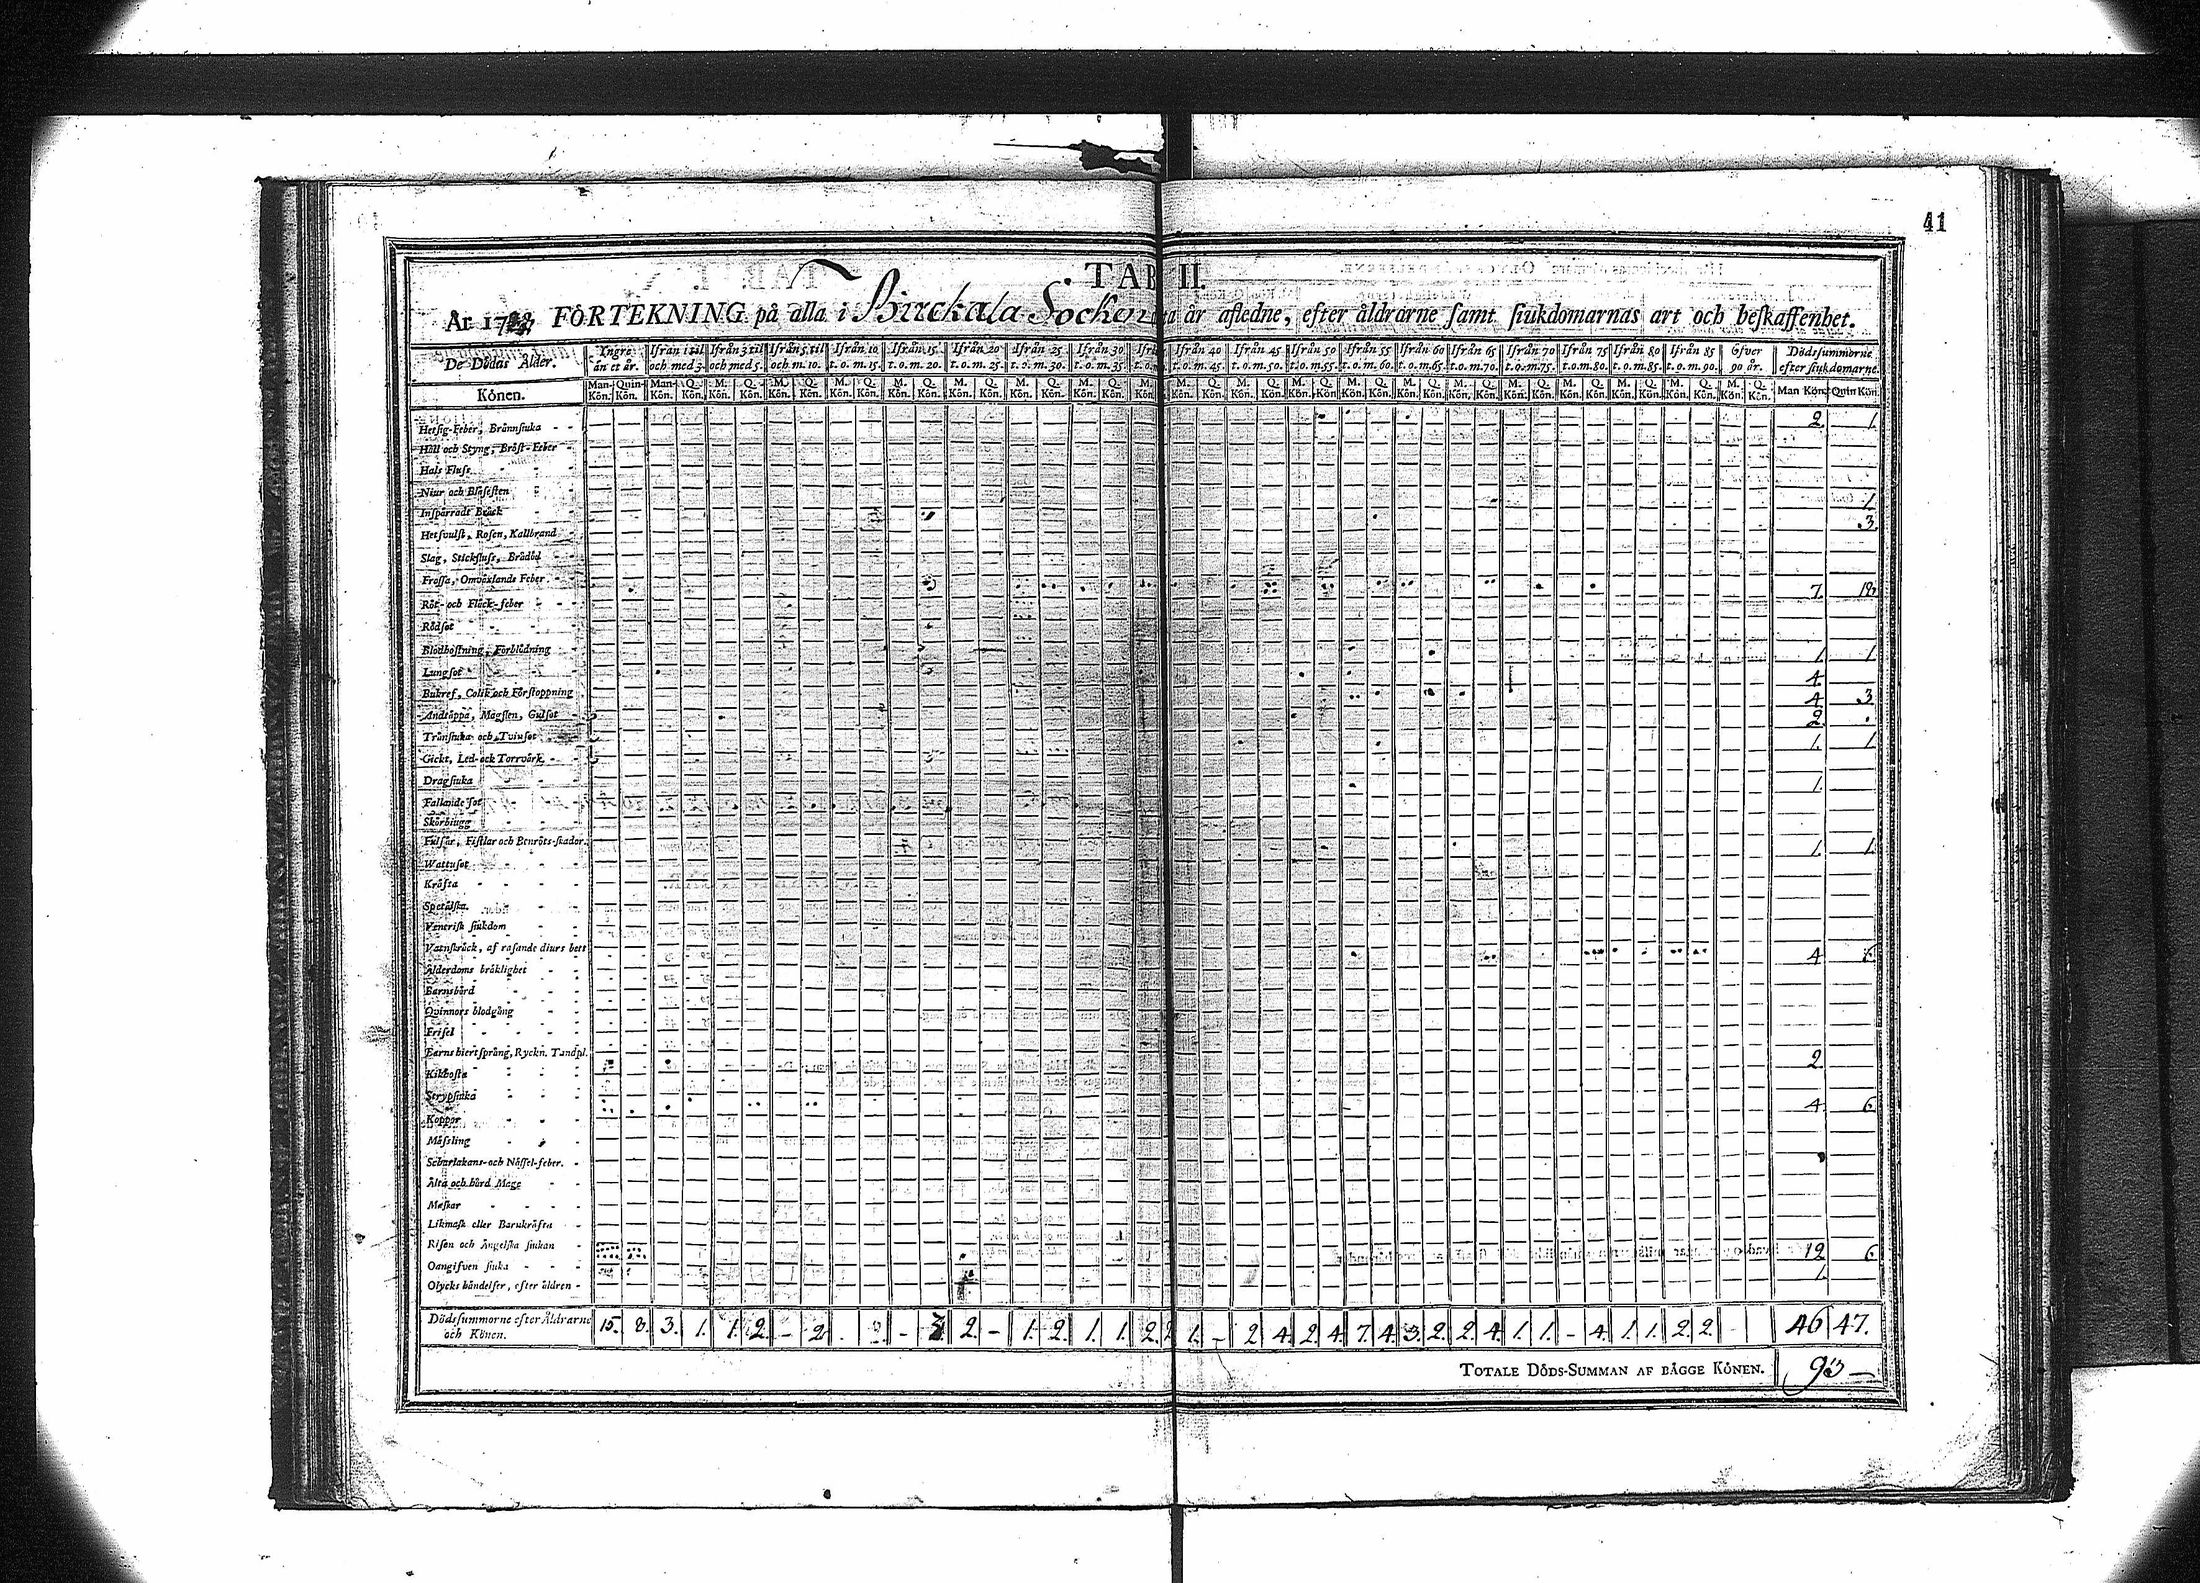 41
TAB II.
År 17 FÖRTEKNING på alla i Birckala Socken år afledne, efter åldrarne samt siukdomarnas art och beskaffenhet.
De Dödas Ålder. Yngre än et år. Ifrån 1 til och med 3. Ifrån 3 til och med 5. Ifrån 5 til och m. 10. Ifrån 10 t. o. m. 15. Ifrån 15 t. o. m. 20. Ifrån 20 t. o. m. 25. Ifrån 25 t. o. m. 30. Ifrån 30 t. o. m. 35. Ifrån 40 t. o. m. 45. Ifrån 45 t. o. m. 50. Ifrån 50 t. o. m. 55. Ifrån 55 t. o. m. 60. Ifrån 60 t. o. m. 65. Ifrån 65 t. o. m. 70. Ifrån 70 t. o. m. 75. Ifrån 75 t. o. m. 80. Ifrån 80 t. o. m. 85. Ifrån 85 t. o. m. 90. Öfver 90 år. Dödssummorne efter siukdomarne.
Könen. Man-Kön. Quin-Kön. Man-Kön. Q. Kön. M. Kön. Q. Kön. M. Kön. Q. Kön. M. Kön. Q. Kön. M. Kön. Q. Kön. M. Kön. Q. Kön. M. Kön. Q. Kön. M. Kön. Q. Kön. M. Kön. M. Kön. Q. Kön. M. Kön. Q. Kön. M. Kön. Q. Kön. M. Kön. Q. Kön. M. Kön. Q. Kön. M. Kön. Q. Kön. M. Kön. Q. Kön. M. Kön. Q. Kön. M. Kön. Q. Kön. M. Kön. Q. Kön. M. Kön. Q. Kön. Man Kön. Quin Kön.
Hetsig-Feber, Brännsiuka 2. 1.
Håll och Styng, Bröst-Feber
Hals Fluss
Niur och Blåsesten
Inspärradt Bråck 1.
Hetsvulst, Rosen, Kallbrand 3.
Slag, Stickfluss, Brådöd
Frossa, Omväxlande Feber
Röt- och Fläck-feber 7. 18.
Rödsot
Blodhostning, Förblödning
Lungsot 1. 1.
Bukref, Colik och Förstoppning 4.
Andtäppa, Magsten, Gulsot 4. 3.
Trånsiuka och Tvinsot 2.
Gickt, Led- och Torrvärk 1. 1.
Dragsiuka
Fallande Sot 1.
Skörbiugg
Fulsår, Fistlar och Benröts-skador
Wattusot 1. 1.
Kräfta
Spetälska
Venerisk siukdom
Vatnskräck, af rasande diurs bett
Ålderdoms bräklighet 4 6.
Barnsbörd
Qvinnors blodgång
Frisel
Barns hiertsprång, Ryckn. Tandpl.
Kikhosta 2
Strypsiuka
Koppor 4. 6.
Mässling
Scharlakans- och Nässel-feber.
Älta och hård Mage
Maskar
Likmask eller Barnkräfta
Risen och Ängelska siukan
Oangifven siuka 12 6.
Olycks händelser, efter åldren 1.
Dödssummorne efter Åldrarne och Könen. 15. 8. 3. 1. 1. 2. - 2. - 3 2. - 1. 2. 1. 1. 2. 2 1. - 2 4. 2. 4. 7. 4. 3. 2. 2. 4. 1. 1. - 4. 1. 1. 2. 2. 46 47.
TOTALE DÖDS-SUMMAN AF BÄGGE KÖNEN. 93 —